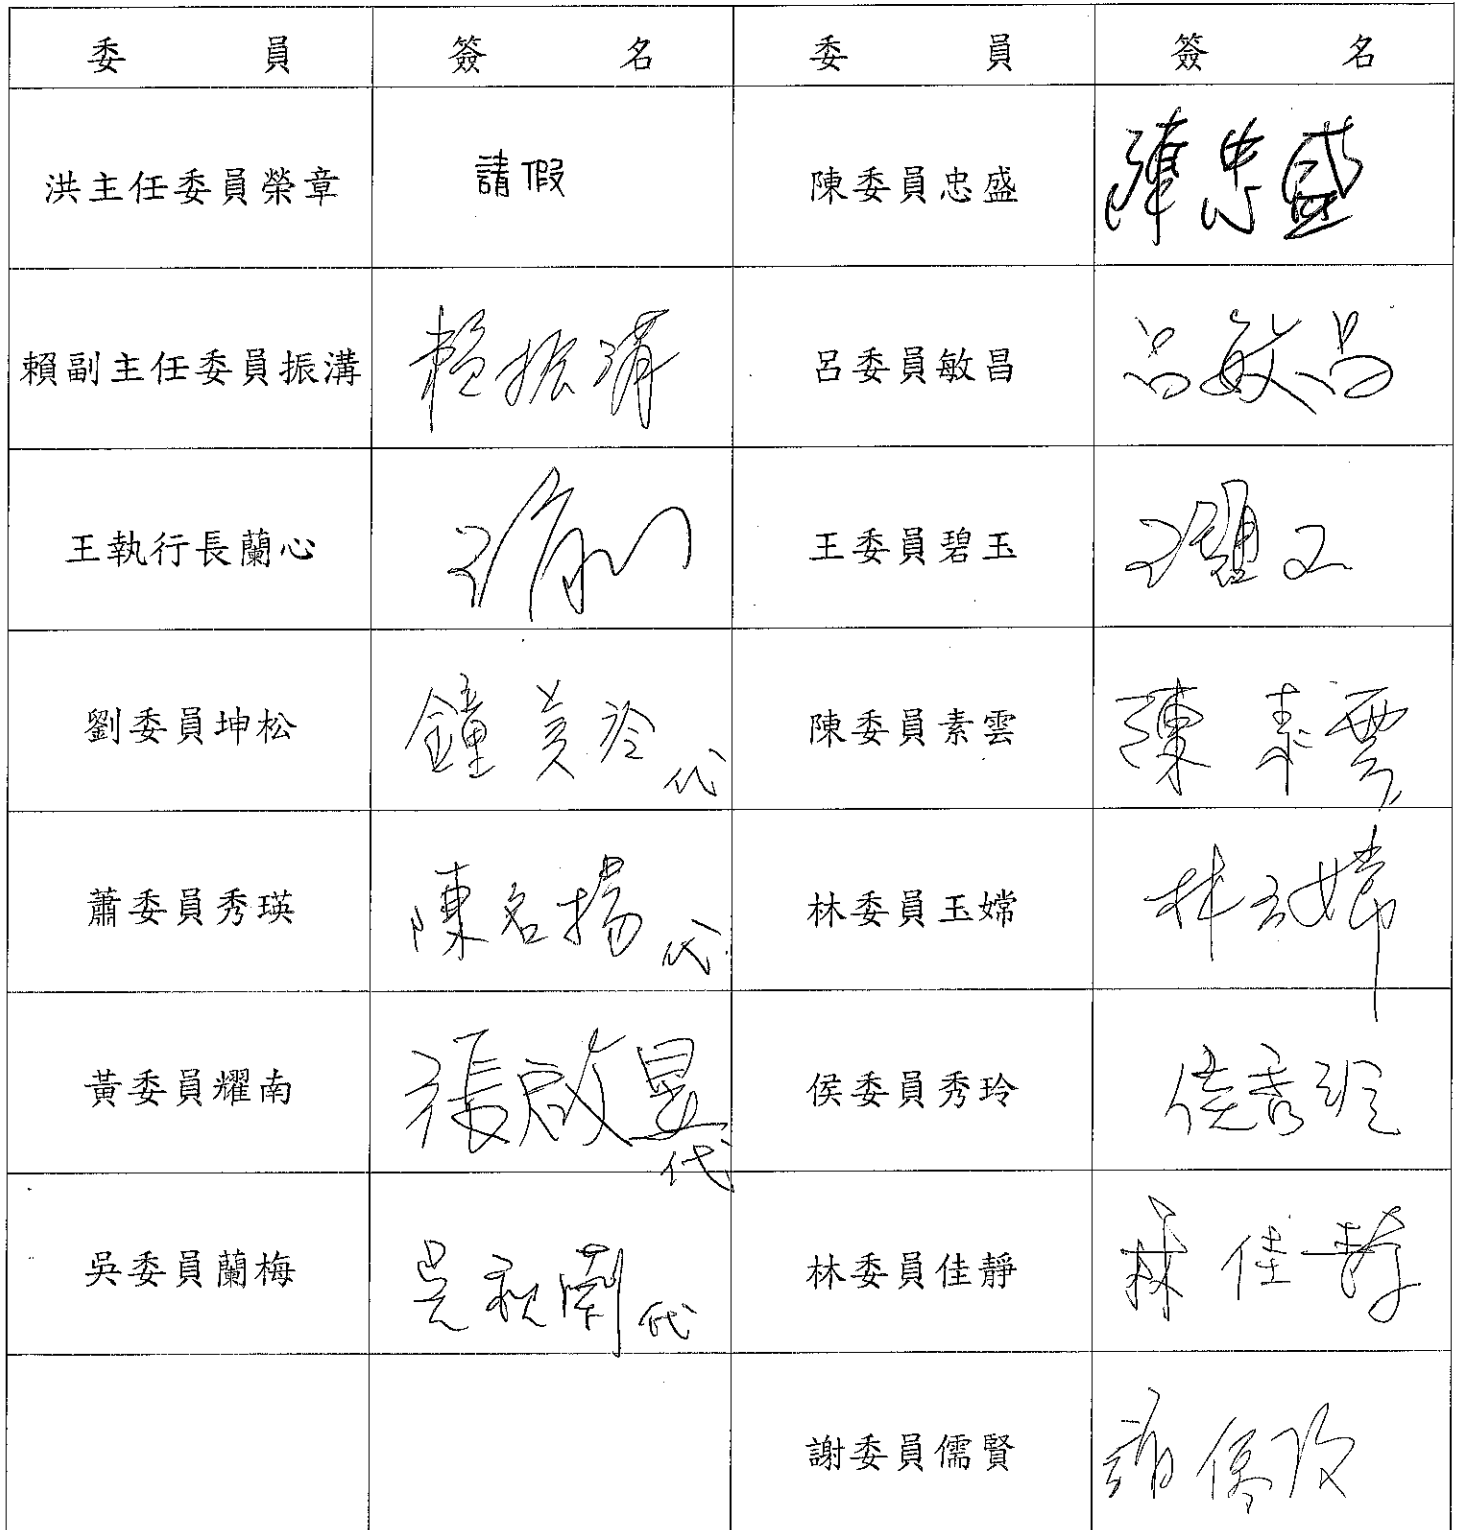 委員 簽名 委員 簽名
洪主任委員榮章 請假 陳委員忠盛 陳忠盛
賴副主任委員振溝 賴振溝 呂委員敏昌 呂敏昌
王執行長蘭心 王委員碧玉 王碧玉
劉委員坤松 鐘美玲代 陳委員素雲 陳素雲
蕭委員秀瑛 陳名揚代 林委員玉嫦 林玉嫦
黃委員耀南 張啟昱代 侯委員秀玲 侯秀玲
吳委員蘭梅 吳秋蘭代 林委員佳靜 林佳靜
謝委員儒賢